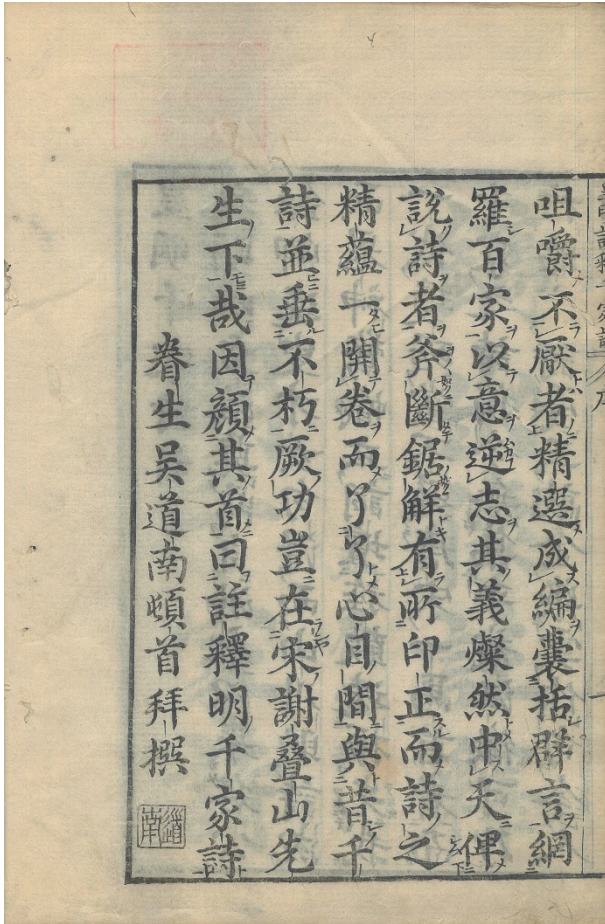 咀嚼不厭者精選成編囊括群言網
羅百家以意逆志其義燦然中天俾
說詩者斧斷鋸解有所印正而詩之
精蘊一開卷而了了心目間與昔千
詩並垂不朽厥功豈在宋謝疊山先
生下哉因顏其首曰註釋明千家詩
眷生吳道南頓首拜撰
道南